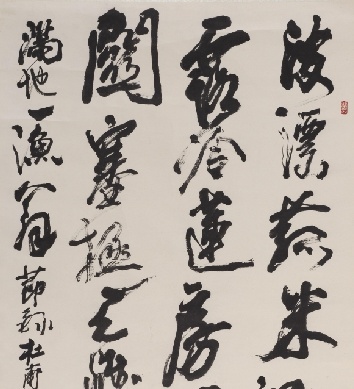 波漂菰米
露冷蓮房
關塞極天惟
滿地一漁翁節錄杜甫